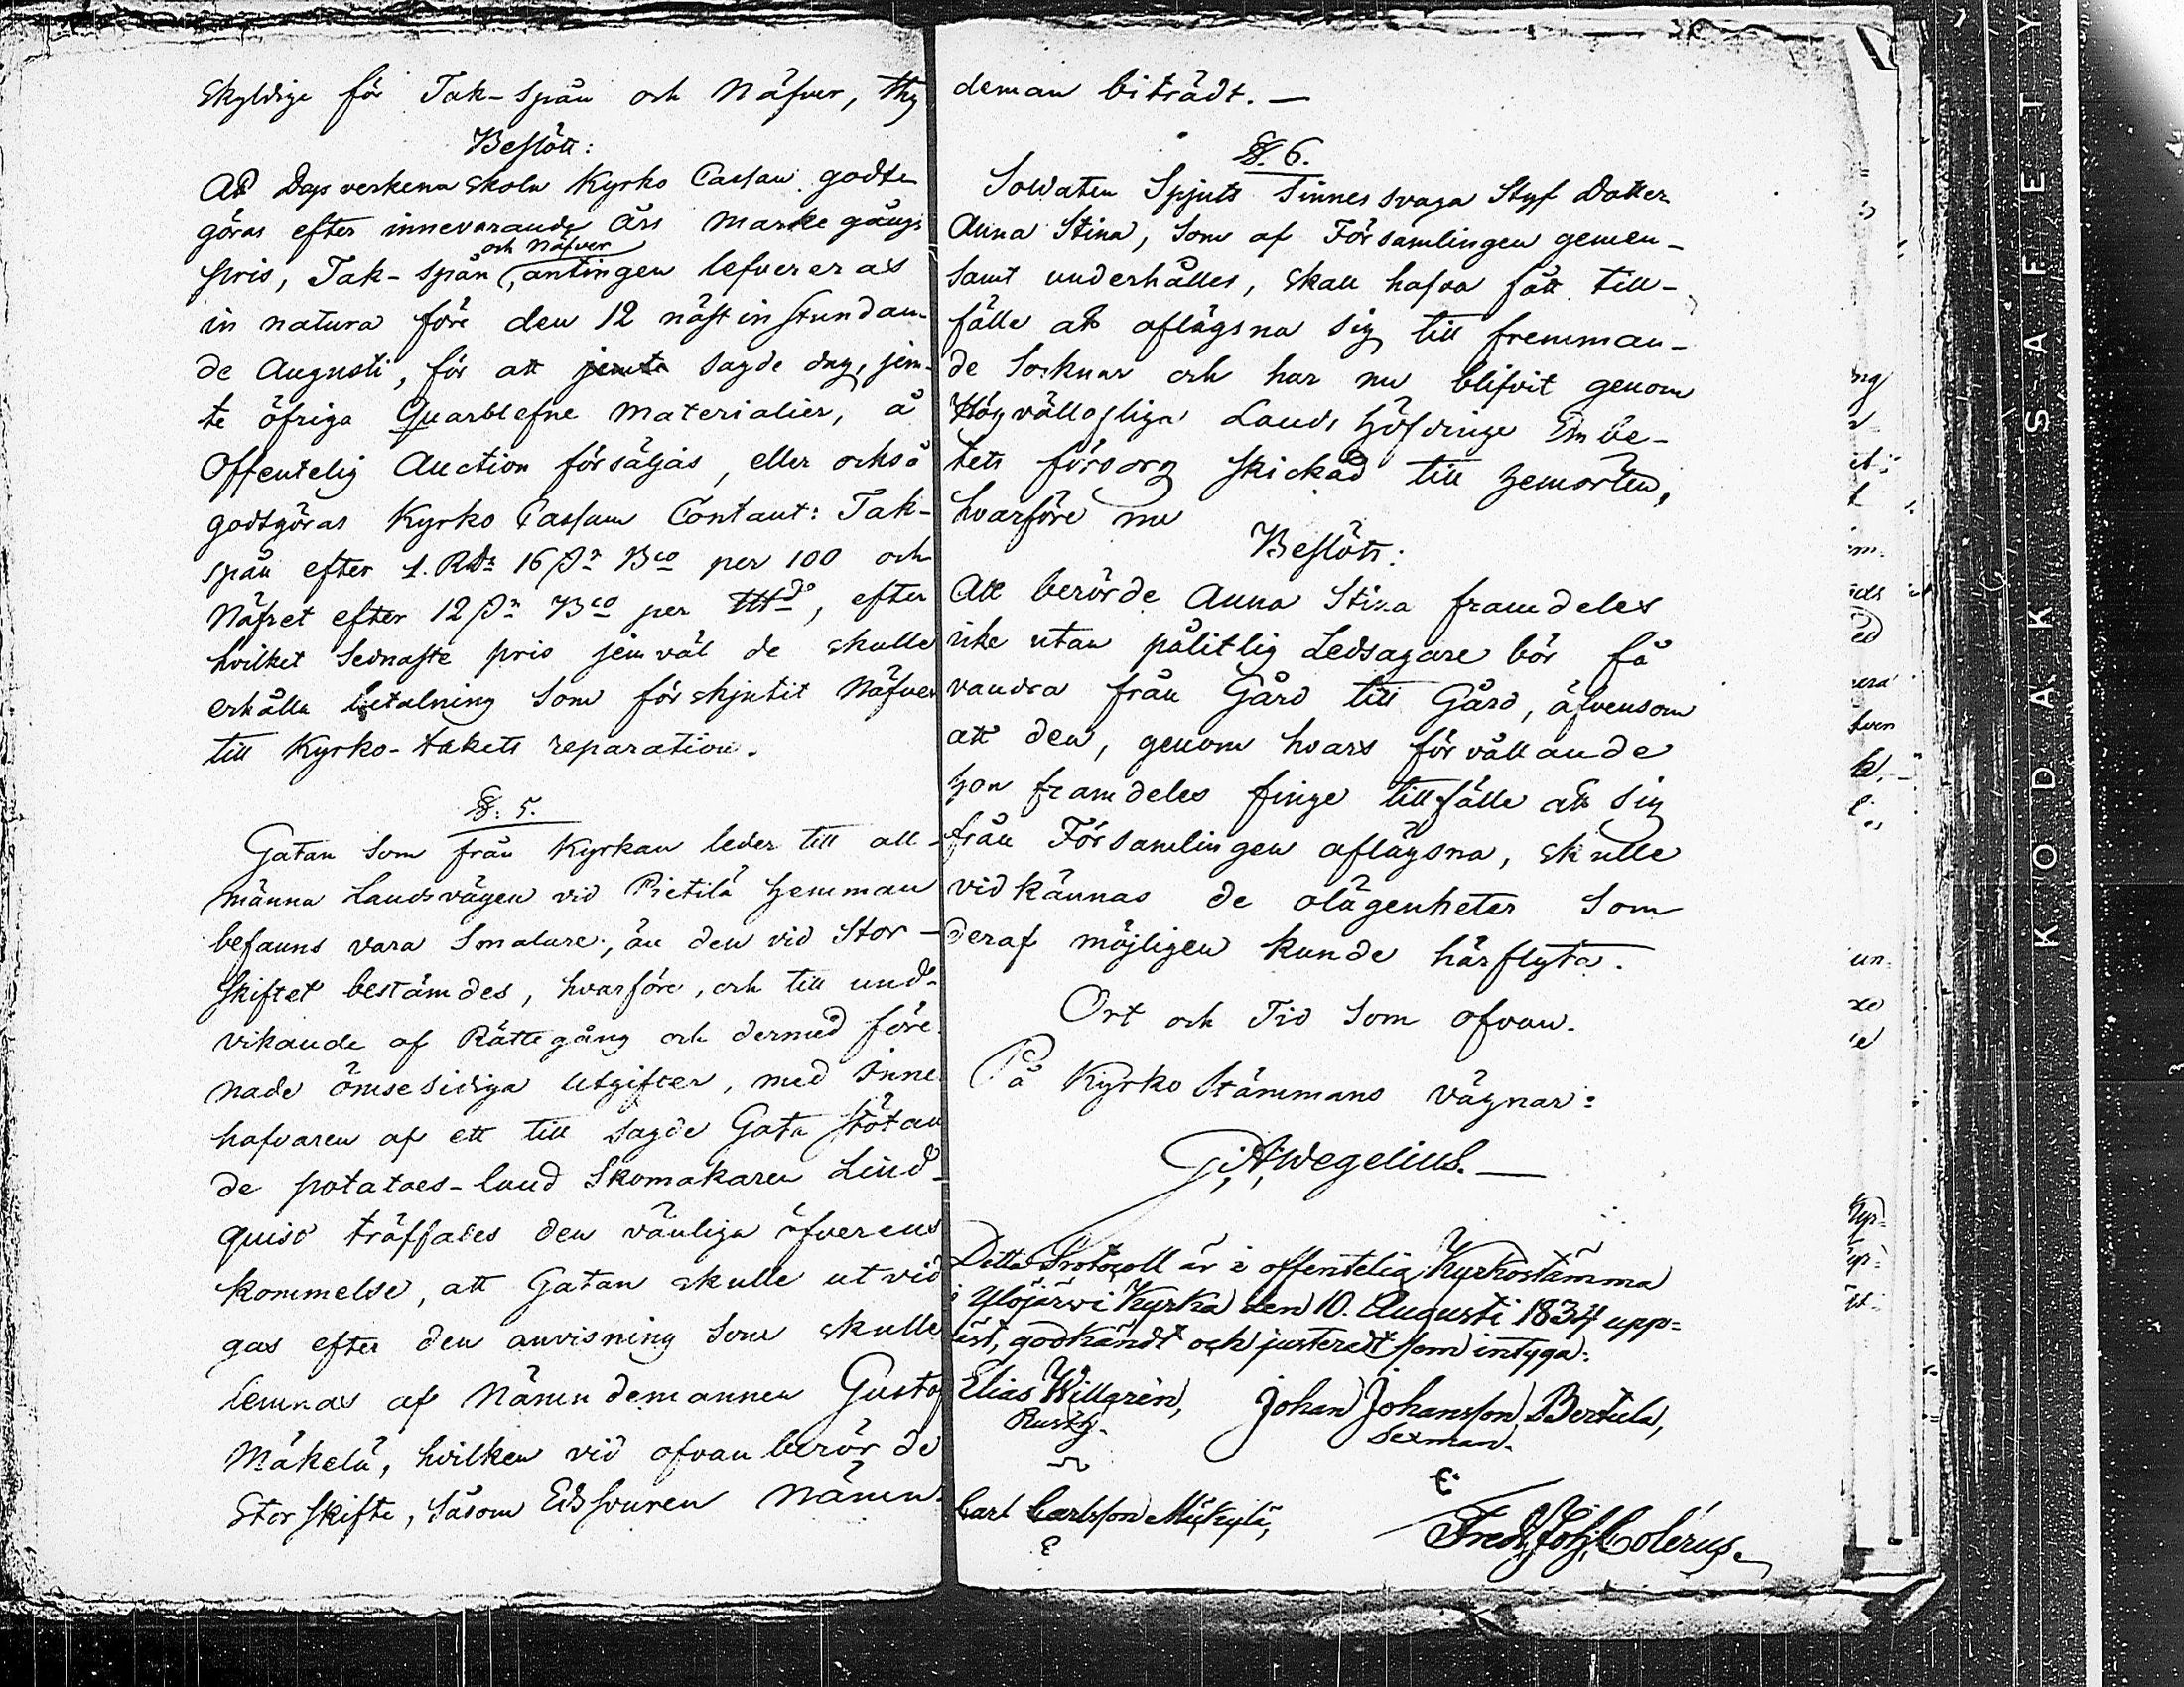 skyldige för Tak-spån och Näfver, thy
Beslöts:
Att Dagsverkena skola Kyrko Cassan godt-
göras efter innevarande års Markegångs
och Näfver
pris, Tak-spån, antingen lefvereras
in natura före den 12 nästinstundan-
de Augusti, för att jemte sagde dag, jem-
te öfriga Quarblefne Materialier, å
Offentelig Auction försäljas, eller också
godtgöras Kyrko Cassan Contant: Tak-
spån efter 1. Rdr 16 sn Bco per 100 och
Näfret efter 12 sn Bco per do, efter
hvilket sednaste pris jemväl de skulle
erhålla betalning som förskjutit Näfver
till Kyrko-takets reparation.
§. 5.
Gatan som från Kyrkan leder till all-
männa Landsvägen vid Pietilä Hemman
befanns vara smalare, än den vid Stor-
skiftet bestämdes, hvarföre, och till und-
vikande af Rättegång och dermed före-
nade ömsesidiga utgifter, med Inne-
hafvaren af ett till sagde Gata stötan
de potatoes-land Skomakaren Lind-
quist träffades den vänliga öfverens
kommelse, att Gatan skulle utvid
gas efter den anvisning som skulle
lemnas af Nämndemannen Gustaf
Mäkelä, hvilken vid ofvanberörde
Storskifte, såsom Edsvuren Nämn-
deman biträdt. —
§. 6.
Soldaten Spjuts Sinnessvaga Styf dotter
Anna Stina, som af Församlingen gemen-
samt underhålles, skall hafva fått till-
fälle att aflägsna sig till fremman-
de Socknar och har nu blifvit genom
Högvällofliga Lands Höfdinge Embe-
tets försorg skickad till hemorten,
hvarföre nu
Beslöts:
Att berörde Anna Stina framdeles
icke utan pålitlig Ledsagare bör få
vandra från Gård till Gård, äfvensom
att den, genom hvars förvållande
hon framdeles finge tillfälle att sig
från Församlingen aflägsna, skulle
vidkännas de olägenheter som
deraf möjligen kunde härflyta.
Ort och Tid som ofvan.
På Kyrko Stämmans vägnar:
G. A. Wegelius. —
Detta Protocoll är i offentelig Kyrkostämma
i Ylöjärvi Kyrka den 10. Augusti 1834 upp=
läst, godkändt och justeradt som intyga:
Elias Willgrén, Johan Johansson Bertula,
Rusth. Sexman.
Carl Carlsson Mikkylä,
Fredr. Joh. Colérus.